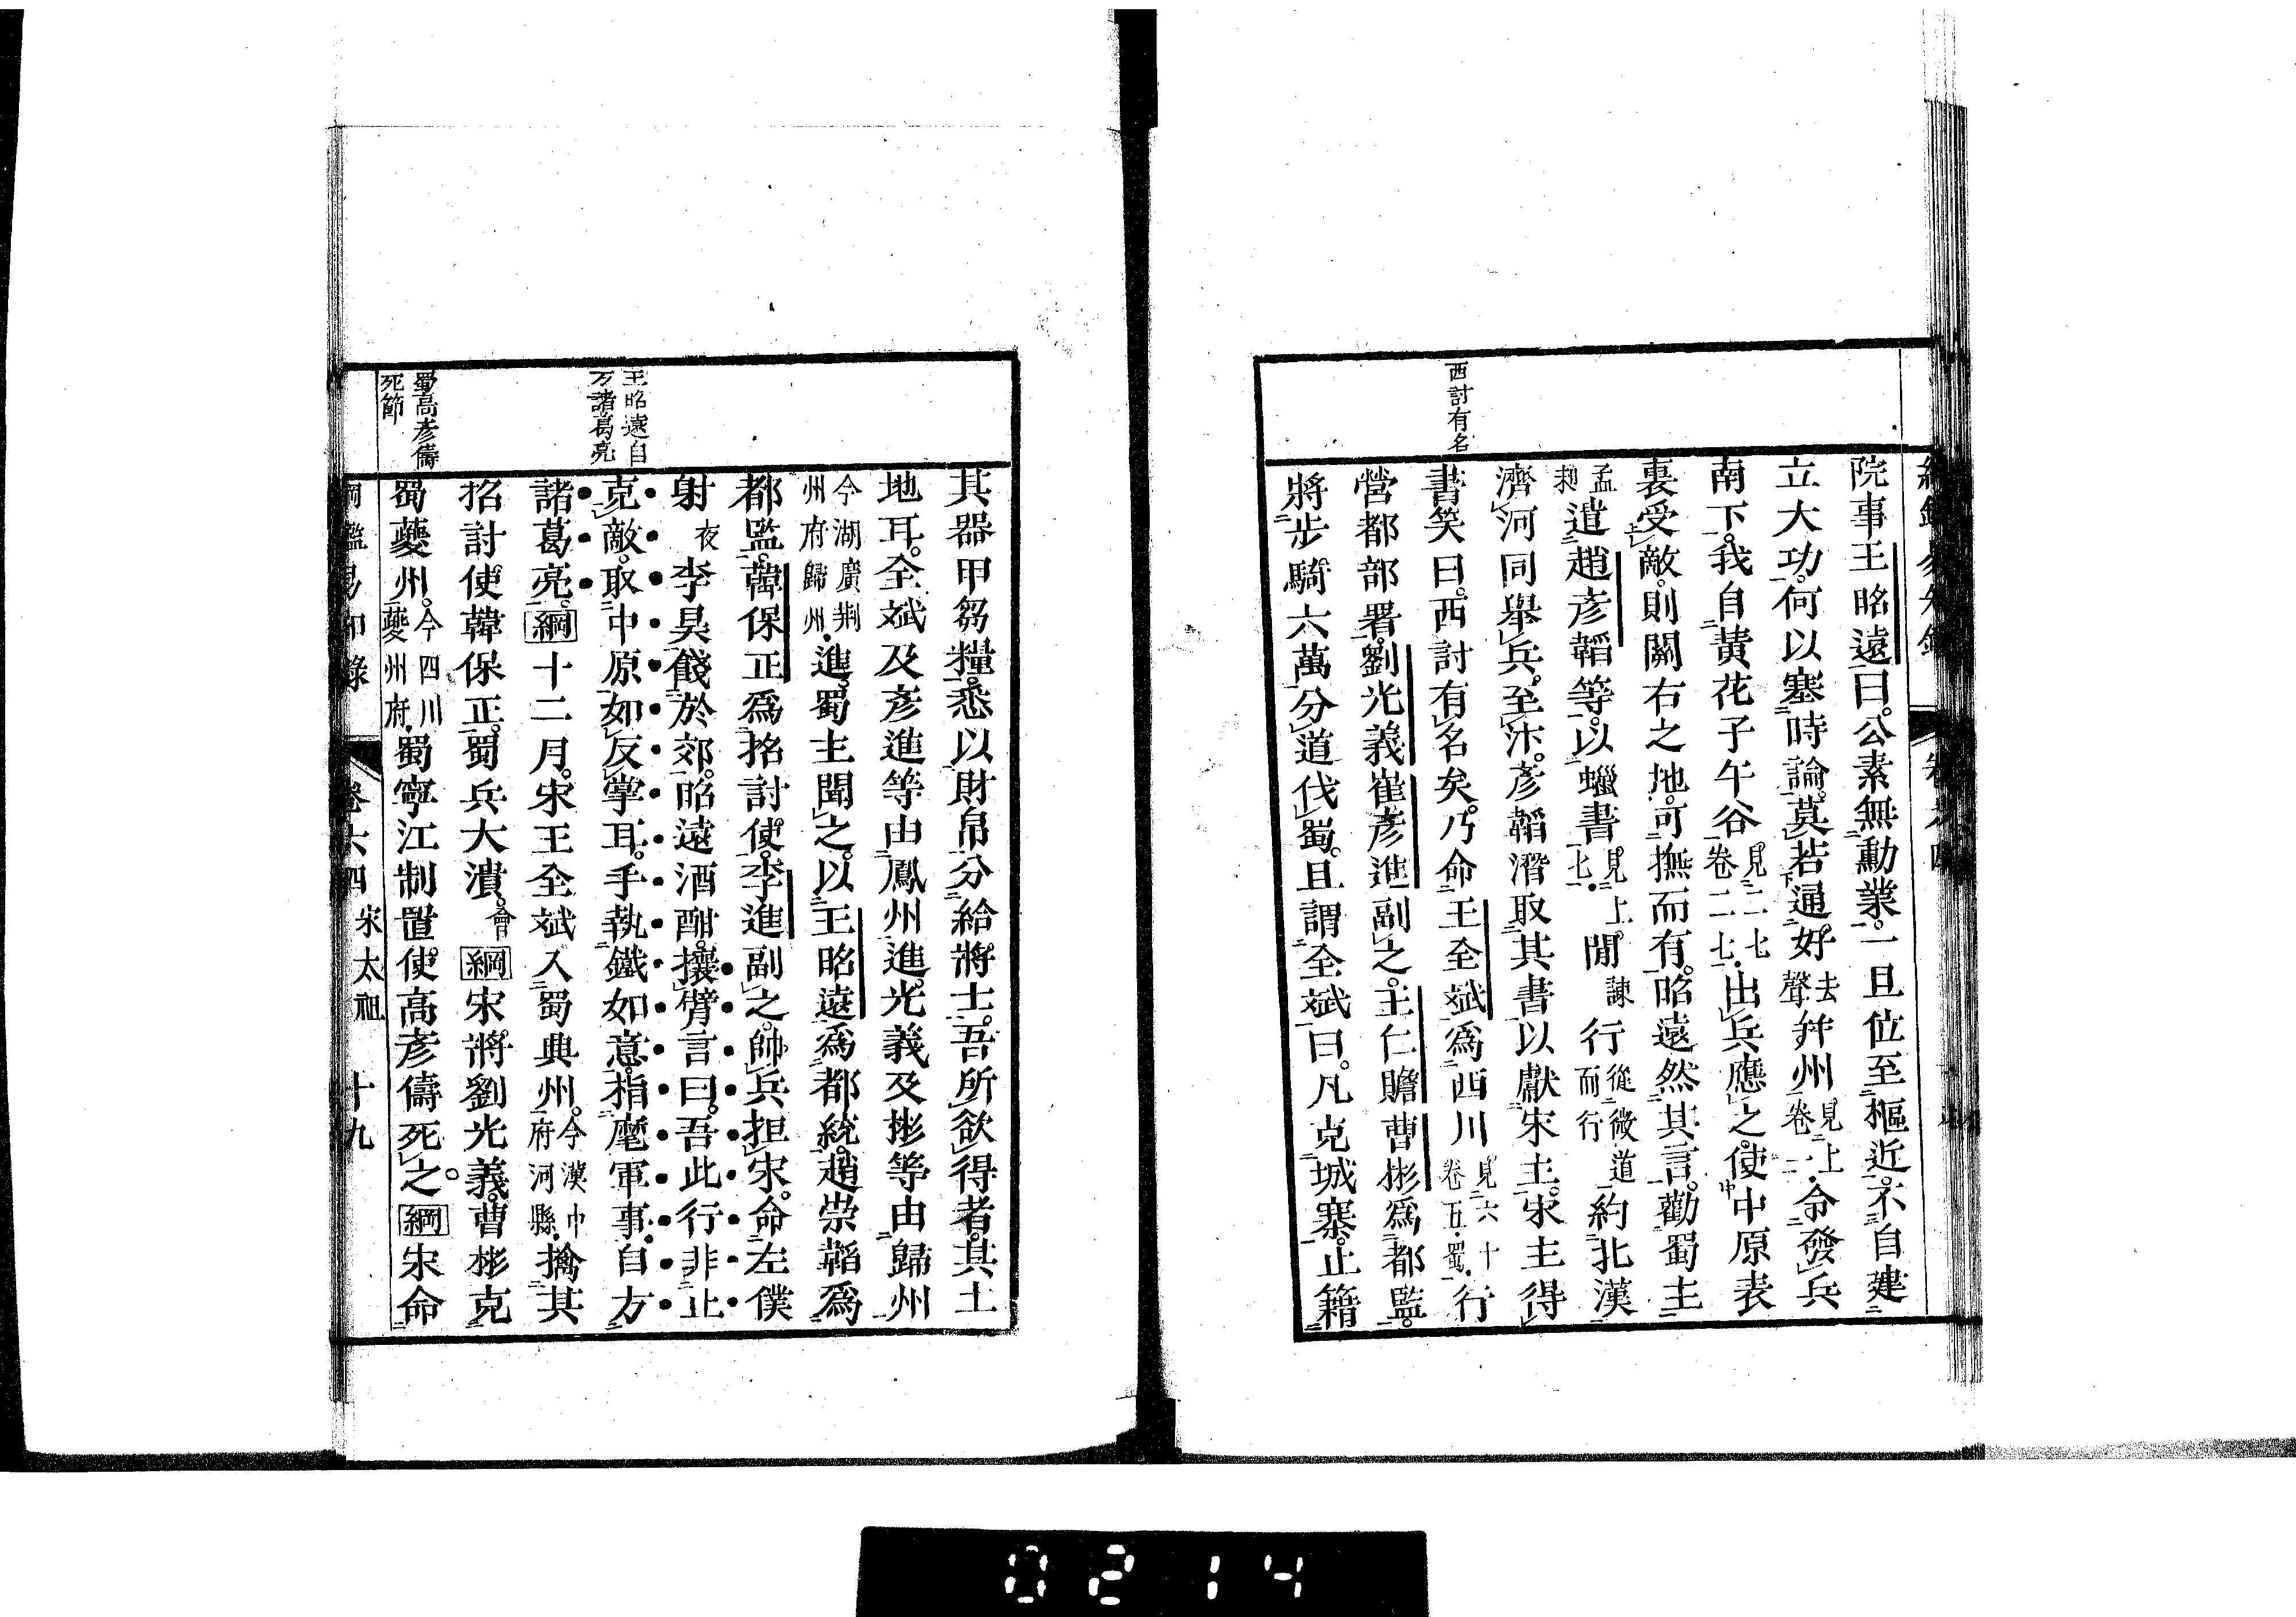 西討有名
院事王昭遠曰公素無勳業一旦位至樞近不自建
立大功何以塞時論莫若通好去聲幷州見上卷一二令發兵
南下我自黃花子午谷見二七卷二七出兵應之使中原表
裏受敵則關右之地可撫而有昭遠然其言勸蜀主
孟昶遣趙彥韜等以蠟書見上七閒諫行從微道而行約北漢
濟河同舉兵至汴彥韜潛取其書以獻宋主宋主得
書笑曰西討有名矣乃命王全斌爲西川見六十卷五蜀行
營都部署劉光義崔彥進副之王仁贍曹彬爲都監
將步騎六萬分道伐蜀且謂全斌曰凡克城寨止籍
王昭遠自方諸葛亮
蜀高彥儔死節
其器甲芻糧悉以財帛分給將士吾所欲得者其土
地耳全斌及彥進等由鳳州進光義及彬等由歸州
今湖廣荆州府歸州進蜀主聞之以王昭遠爲都統趙崇韜爲
都監韓保正爲招討使李進副之帥兵拒宋命左僕
射夜李昊餞於郊昭遠酒酣攘臂言曰吾此行非止
克敵取中原如反掌耳手執鐵如意指麾軍事自方
諸葛亮綱十二月宋王全斌入蜀興州今漢中府沔縣擒其
招討使韓保正蜀兵大潰會綱宋將劉光義曹彬克
蜀夔州今四川夔州府蜀寧江制置使高彥儔死之綱宋命
綱鑑易知錄 卷六四 宋太祖 十九
0214